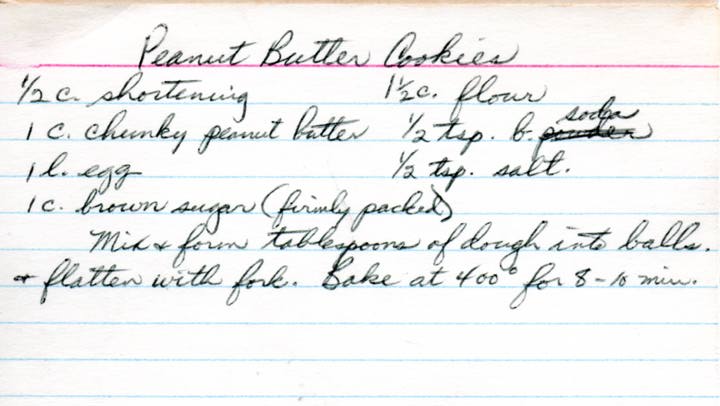 Peanut Butter Cookies
1/2 c. shortening 1 1/2 c. flour
1 c. chunky peanut butter 1/2 tsp. b. soda
1 l. egg 1/2 tsp. salt.
1 c. brown sugar (firmly packed)
Mix & form tablespoons of dough into balls.
& flatten with fork. Bake at 400° for 8-10 min.